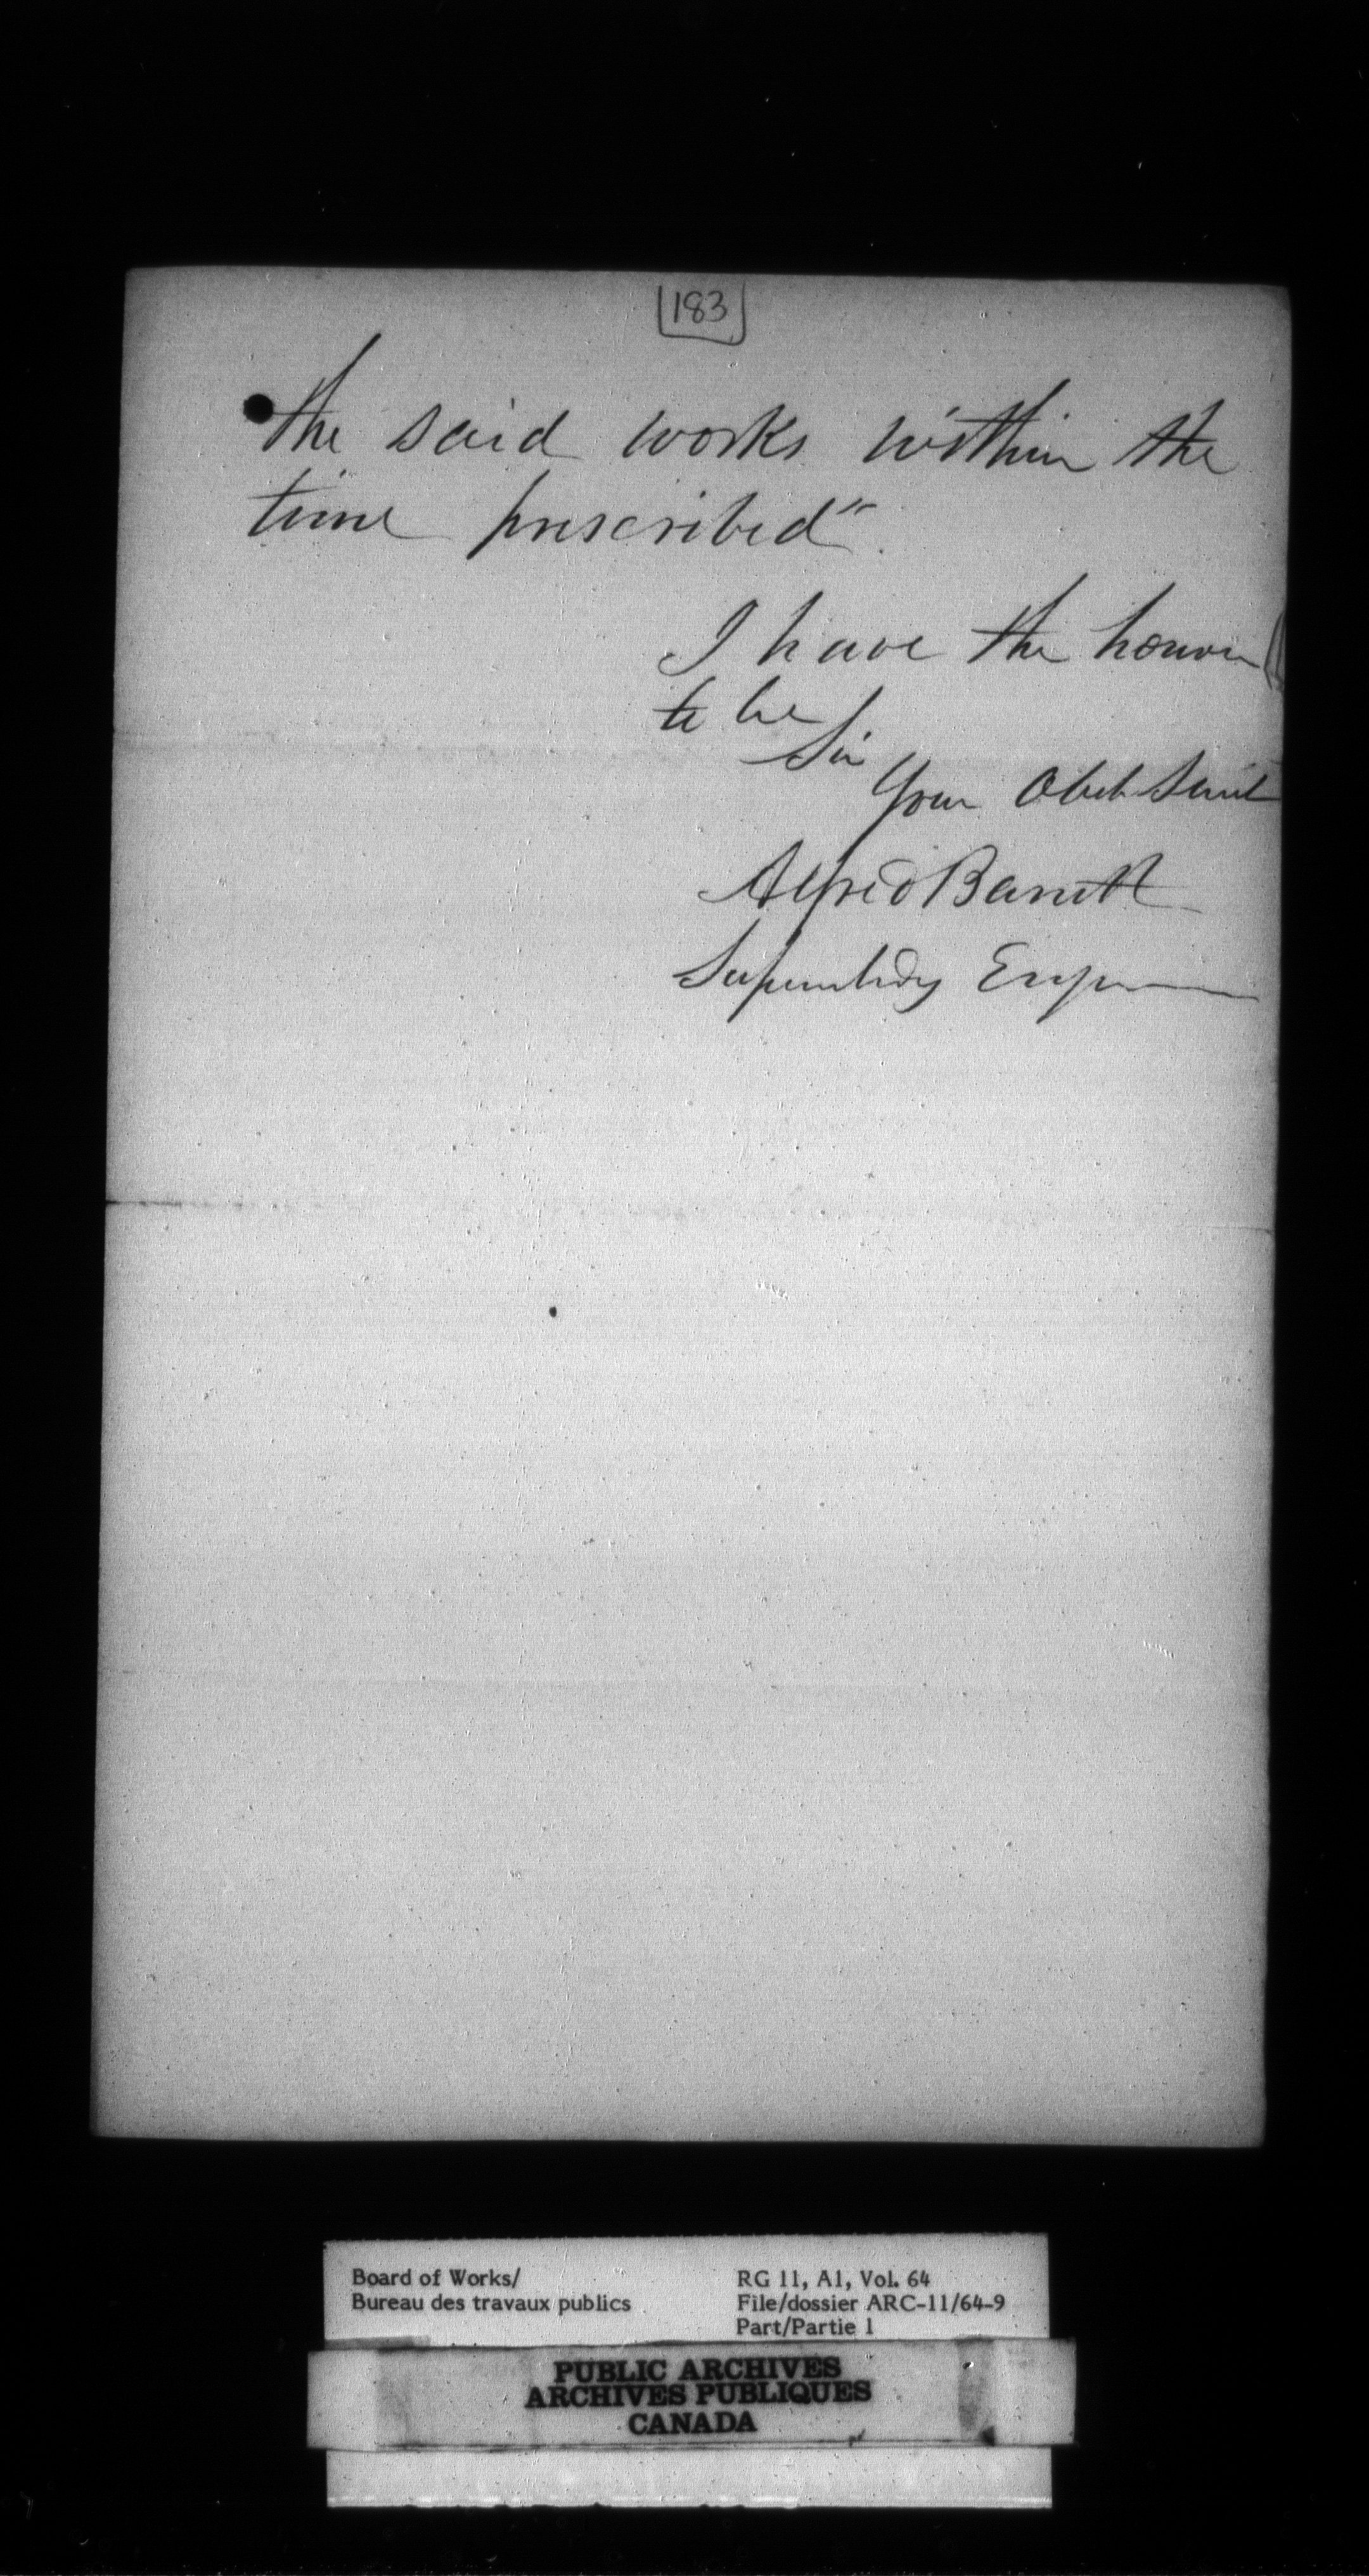 183
the said works within the
time prescribed".
I have the honour
to be
Sir
Your Obedt Servt
Alfred Barrett
Superintdg Engr
Board of Works/
Bureau des travaux publics
RG 11, A1, Vol. 64
File/dossier ARC-11/64-9
Part/Partie 1
PUBLIC ARCHIVES
ARCHIVES PUBLIQUES
CANADA